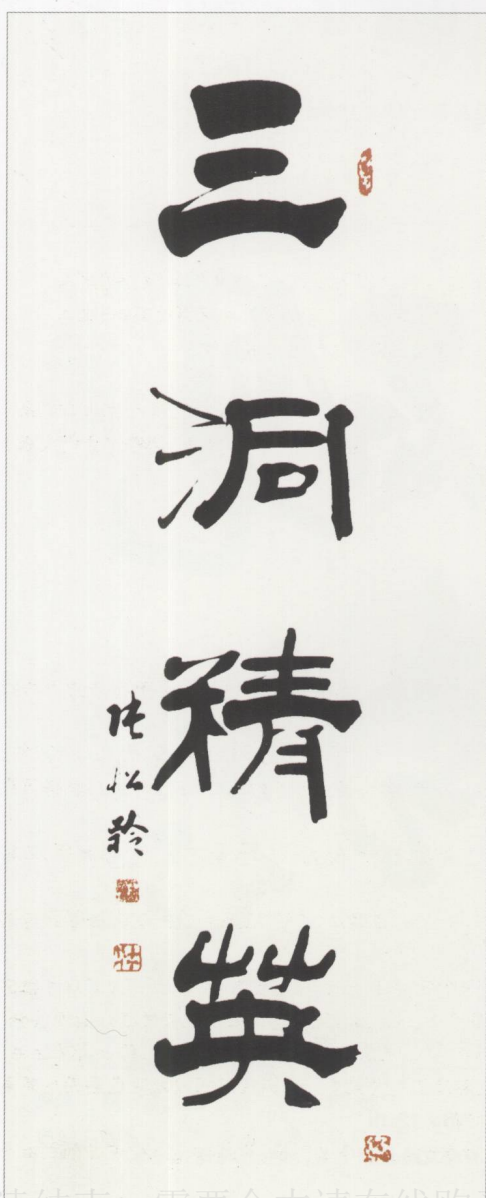 三洞精英
张松龄